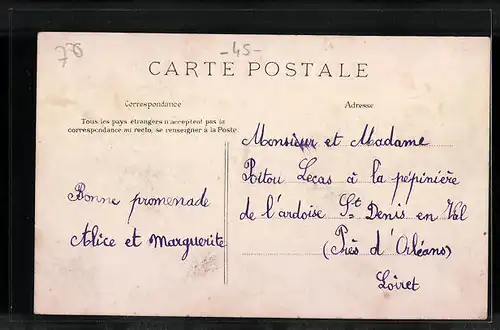 776
-45-
CARTE POSTALE
Correspondance
Tous les pays étrangers n'acceptent pas la
correspondance au recto, se renseigner à la Poste.
Bonne promenade
Alice et Marguerite
Adresse
Monsieur et Madame
Poitou Lecas à la pépinière
de l'ardoise St Denis en Val
(Près d'Orléans)
Loiret